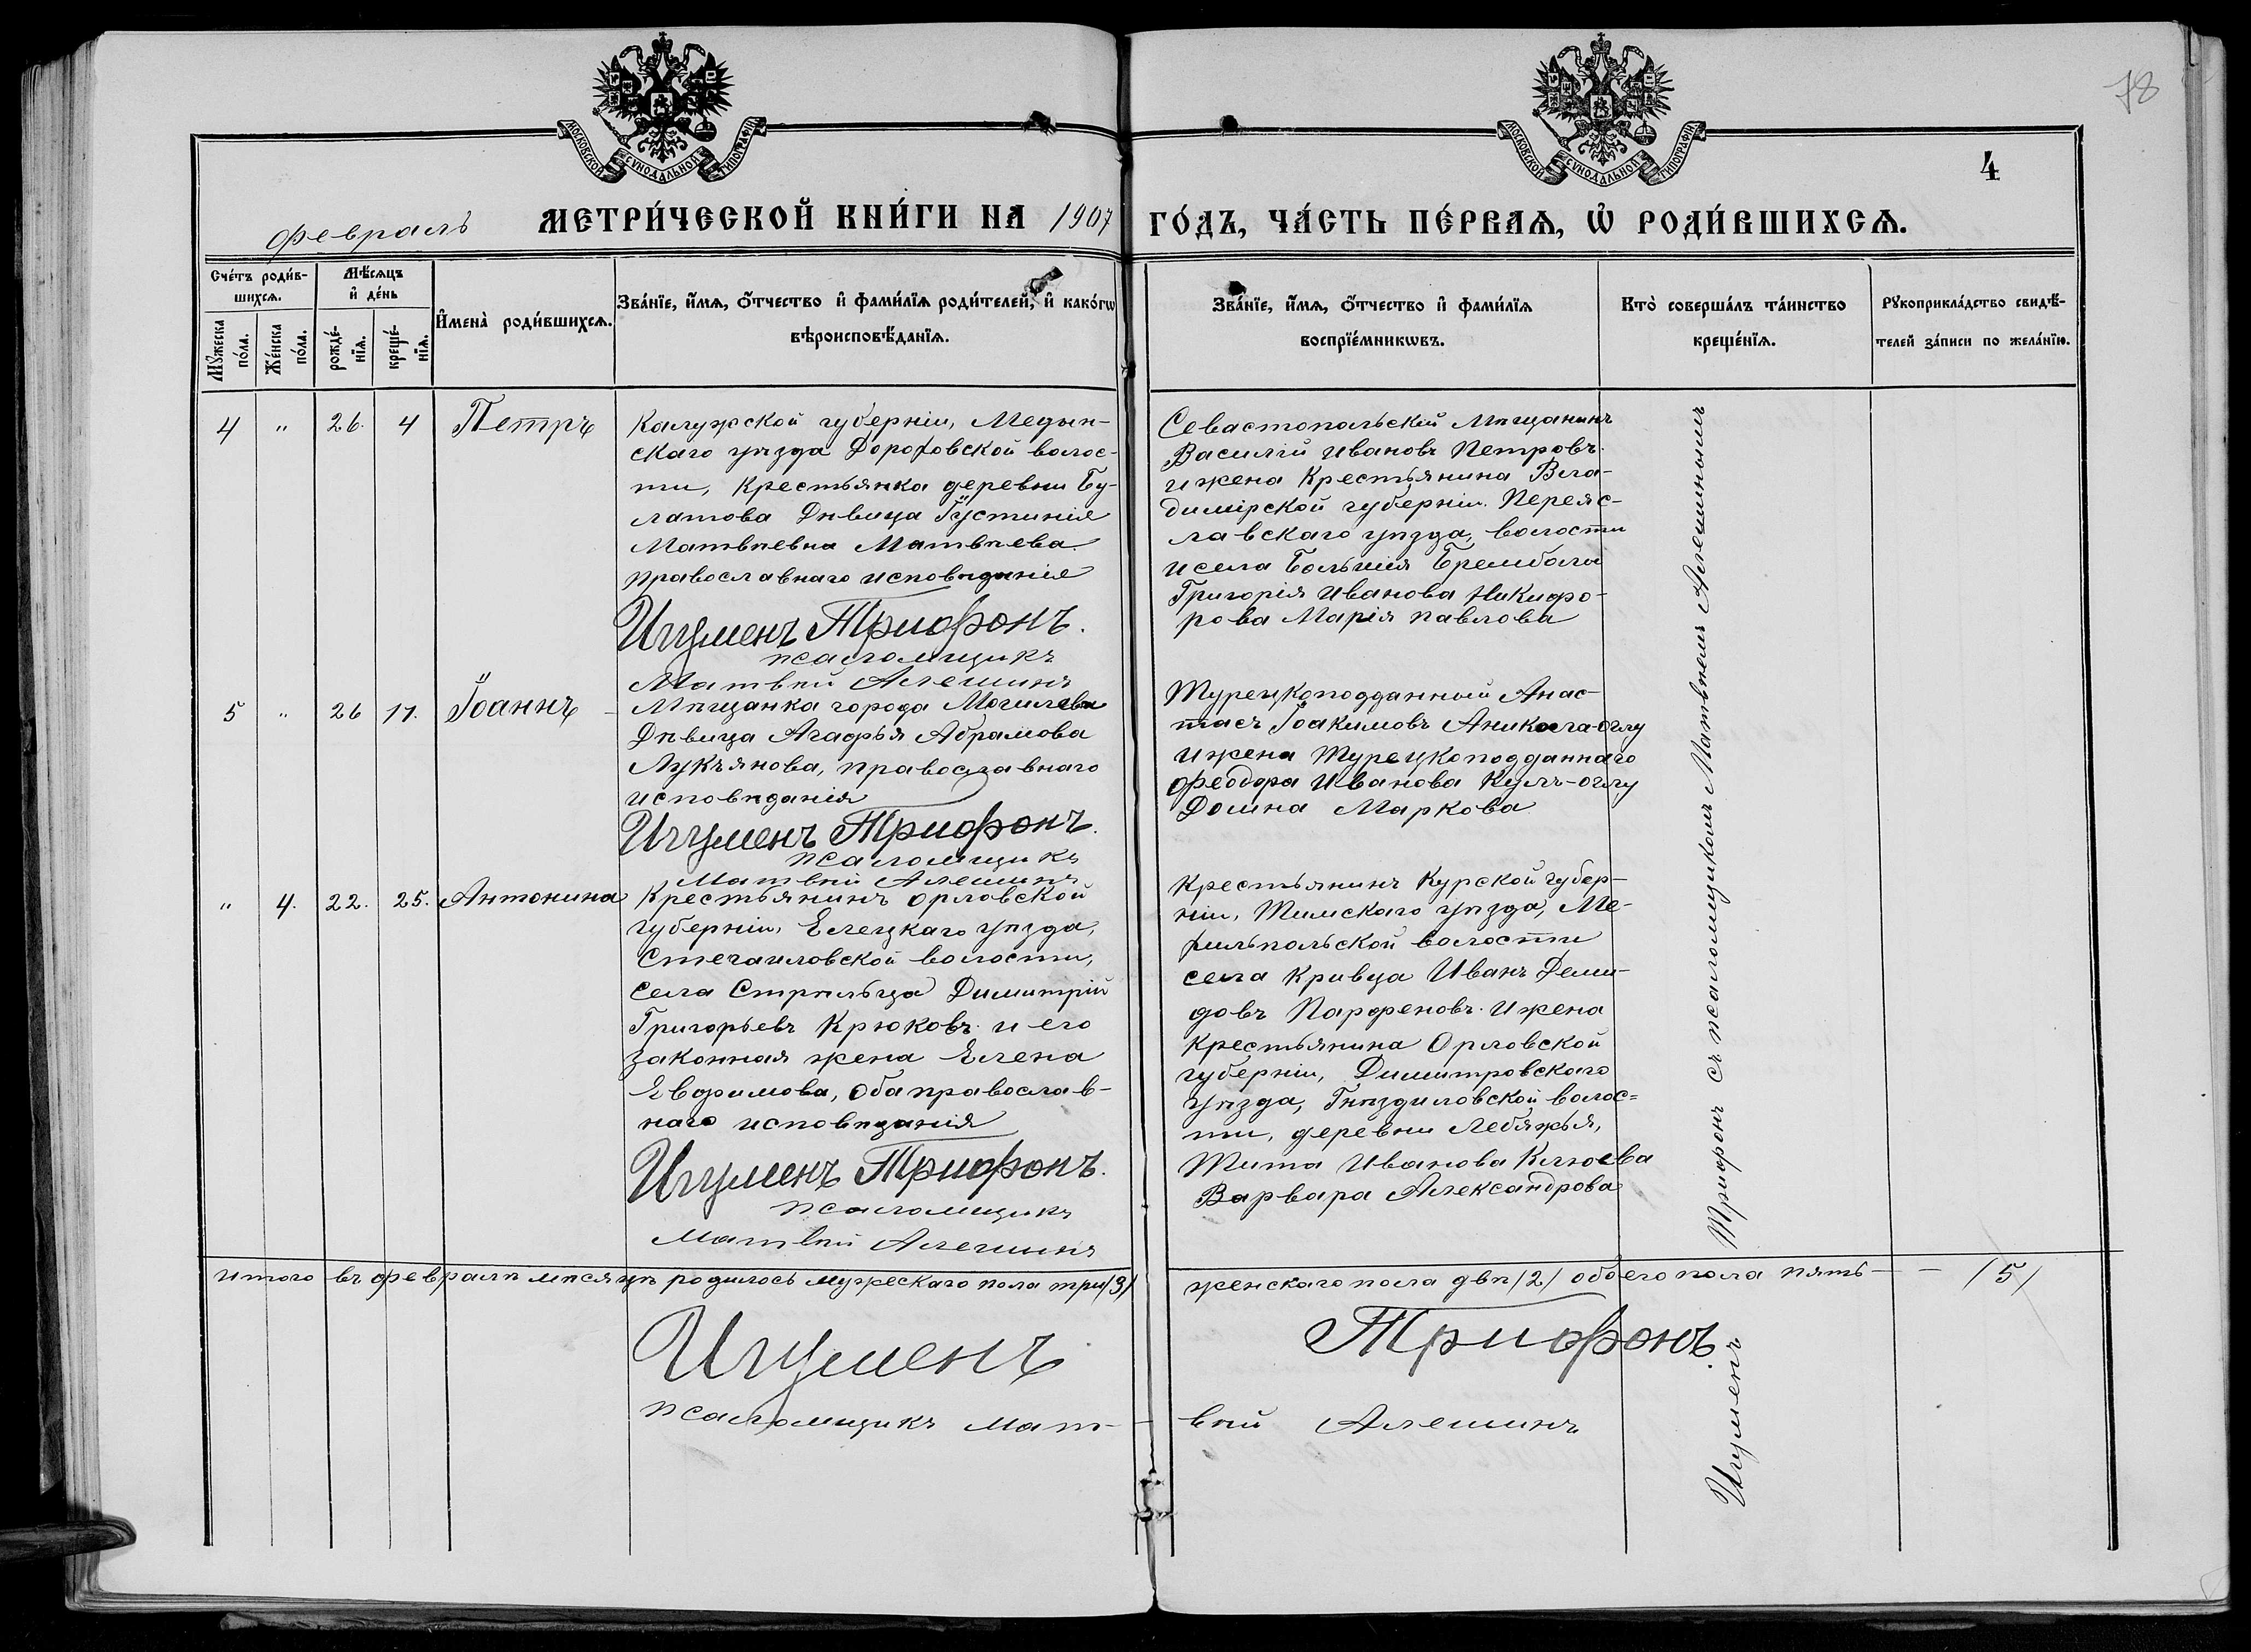 МОСКОВСКОЙ СѴНОДАЛЬНОЙ ТИПОГРАФІИ
МОСКОВСКОЙ СѴНОДАЛЬНОЙ ТИПОГРАФІИ
78
4
Февраль
МЕТРИ́ЧЕСКОЙ КНИ́ГИ НА 1907 ГО́ДЪ, ЧА́СТЬ ПЕ́РВАѦ, Ѡ҆ РОДИ́ВШИХСѦ.
Сче́тъ роди́в-
шихсѧ.
Мꙋжеска по́ла.
Же́нска по́ла.
Мѣ́сѧцъ
и҆ де́нь
рожде́-
нїѧ.
креще́-
нїѧ.
И҆мена̀ роди́вшихсѧ.
Зва́нїе, и҆́мѧ, ѻ҆́тчество и҆ фами́лїѧ роди́телей, и҆ како́гѡ
вѣроисповѣ́данїѧ.
Зва́нїе, и҆́мѧ, ѻ҆́тчество и҆ фами́лїѧ
воспрїе́мникѡвъ.
Кто̀ соверша́лъ та́инство
креще́нїѧ.
Рꙋкоприкла́дство свидѣ́-
телей за́писи по жела́нїю.
4 " 26. 4 Петръ
Калужской губерніи, Медын-
скаго уѣзда Дороховской волос-
ти, крестьянка деревни Бу-
латова Дѣвица Іустинія
Матвѣевна Матвѣева.
православнаго исповѣданія
Игуменъ Трифонъ.
псаломщикъ
Матвѣй Алешинъ
Севастопольскій Мѣщанинъ
Василій Ивановъ Петровъ.
и жена Крестьянина Вла-
димірской губерніи. Переяс-
лавскаго уѣзда, волости
и села Большія Брембола
Григорія Иванова Никифо-
рова Марія Павлова
5 " 26 11. Іоаннъ
Мѣщанка города Могилева
Дѣвица Агафья Абрамова
Лукъянова, православнаго
исповѣданія
Игуменъ Трифонъ.
псаломщикъ
Матвѣй Алешинъ
Турецкоподданный Анас-
тасъ Іоакимовъ Аникола-оглу
и жена Турецкоподданнаго
Феодора Иванова Кулъ-оглу
Домна Маркова
" 4. 22. 25. Антонина
Крестьянинъ Орловской
губерніи, Елецкаго уѣзда,
Стегаиловской волости,
села Стрѣльца Димитрій
Григорьевъ Крюковъ и его
законная жена Елена
Евфимова, оба православ-
наго исповѣданія
Игуменъ Трифонъ.
псаломщикъ
Матвѣй Алешинъ
Крестьянинъ Курской губер-
ніи, Тимскаго уѣзда, Ме-
рильпольской волости
села Кривца Иванъ Деми-
довъ Парфеновъ. и жена
Крестьянина Орловской
губерніи, Димитровскаго
уѣзда, Гнѣздиловской волос=
ти, деревни Лебяжья,
Тита Иванова Клюева
Варвара Александрова
Игуменъ Трифонъ съ псаломщикомъ Матвѣемъ Алешинымъ
итого въ февралѣ мѣсяцѣ родилось мужескаго пола три /3/ женскаго пола двѣ /2/ обоего пола пять — — /5/
Игуменъ Трифонъ.
псаломщикъ Мат- вѣй Алешинъ